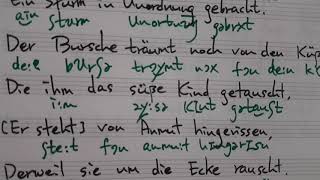 Ein Sturm in Unordnung gebracht.
aɪn sturm unortnuŋ gəbrɔxt
Der Bursche träumt noch von den Küs
de:ɐ bʊrʃə trɔymt nɔx fɔn de:n k
Die ihm das süße Kind getauscht,
i:m zy:sə kɪnt gətauʃt
[Er steht] von Anmut hingerissen,
ʃte:t fɔn anmu:t hɪngərɪsn
Derweil sie um die Ecke rauscht.